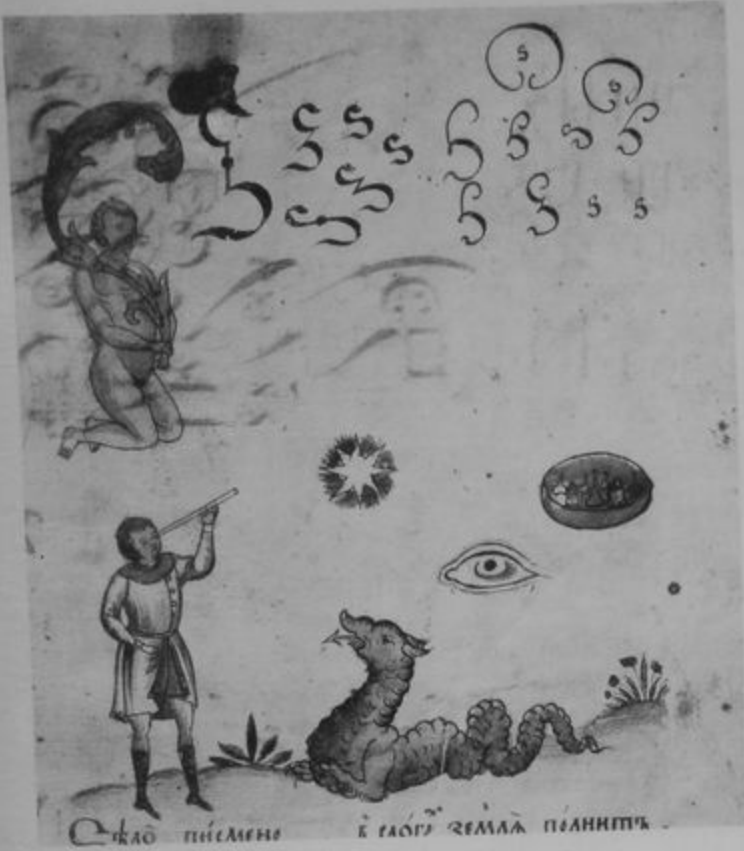 ѕ ѕ
Ѕ Ѕ ѕ ѕ Ѕ Ѕ ѕ Ѕ
Ѕ ѕ Ѕ Ѕ ѕ ѕ
Ѕѣлѡ̀ пи́смено в̾ землѧ̀ по́лнитъ.